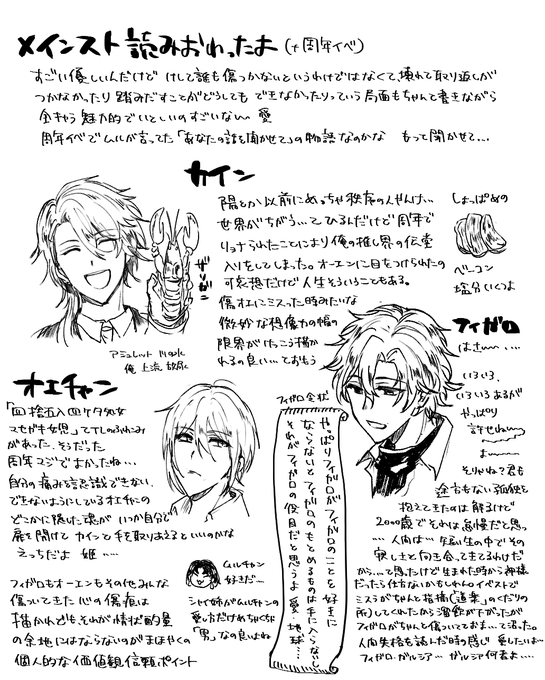 メインスト読みおわったよ(+周年イベ)
すごい優しいんだけど けして誰も傷つかないというわけではなくて、壊れて取り返しが
つかなかったり 踏みだすことがどうしても できなかったりっていう局面もちゃんと書きながら
全キャラ 魅力的でいとしいのすごいな〜 愛
周年イベでムルが言ってた「あなたの話を聞かせて」の物語なのかな もって聞かせて…
カイン
陽とか以前にめっちゃ秩序の人やんけ…
世界がちがう…てひるんだけど周年で
リョナられたことにより俺の推し界の伝堂
入りをしてしまった。オーエンに目をつけられたの
可哀想だけど人生そういうこともある。
傷オエにミスった時みたいな
微妙な想像力の幅の
限界がけっこう描か
れるの良い…ておもう
ザリガニ
アミュレット
俺 上流
しょっぱめの
ベーコン
塩分いくつよ
フィガロ
はぁ〜…
いろいろ、
いろいろあるが
やっぱり
許せね〜
よ〜
そりゃね?君も
途方もない孤独を
抱えてきたのは解るけど
2000歳でそれは怠慢だと思っ
…人間は…短い生の中でその
寂しさと向き合ってきてるわけだ
から…て思ったけど生まれた時から神様
だったら仕方ないかもしれんのイベストで
ミスラがちゃんと指摘(道楽のくだりの
所)してくれたから溜飲が下がったが
フィガロがちゃんと傷ついてておま…て沼った。
人間失格を読んだ時の感じ 愛したいよ…
フィガロ・ガルシア… ガルシア何者よ…
フィガロ会状
やっぱりフィガロがフィガロのことを好きに
ならないとフィガロのもとめるものは手に入らないし
それがフィガロの役目だと思うよ 愛 地球…
オエチャン
「四捨五入四ケタ処女
マセガキ女児」てTLのふれこみ
があった、そうだった
周年マジでよかったね…
自分の痛みを認識できない、
できないようにしているオエチャンの
どこかに隠した魂が いつか自分で
扉を開けて カインと手を取りあえるといいのかな
えっちだよ 姫…
フィガロもオーエンもその他みんな
傷ついてきた心の傷痕は
描かれどもそれが情状酌量
の余地にはならないのがまほやくの
個人的な価値観信頼ポイント
ムルチャン
好きだ…
シャイ姉がムルチャンの
愛し方だけめちゃくちゃ
「男」なの良いよね